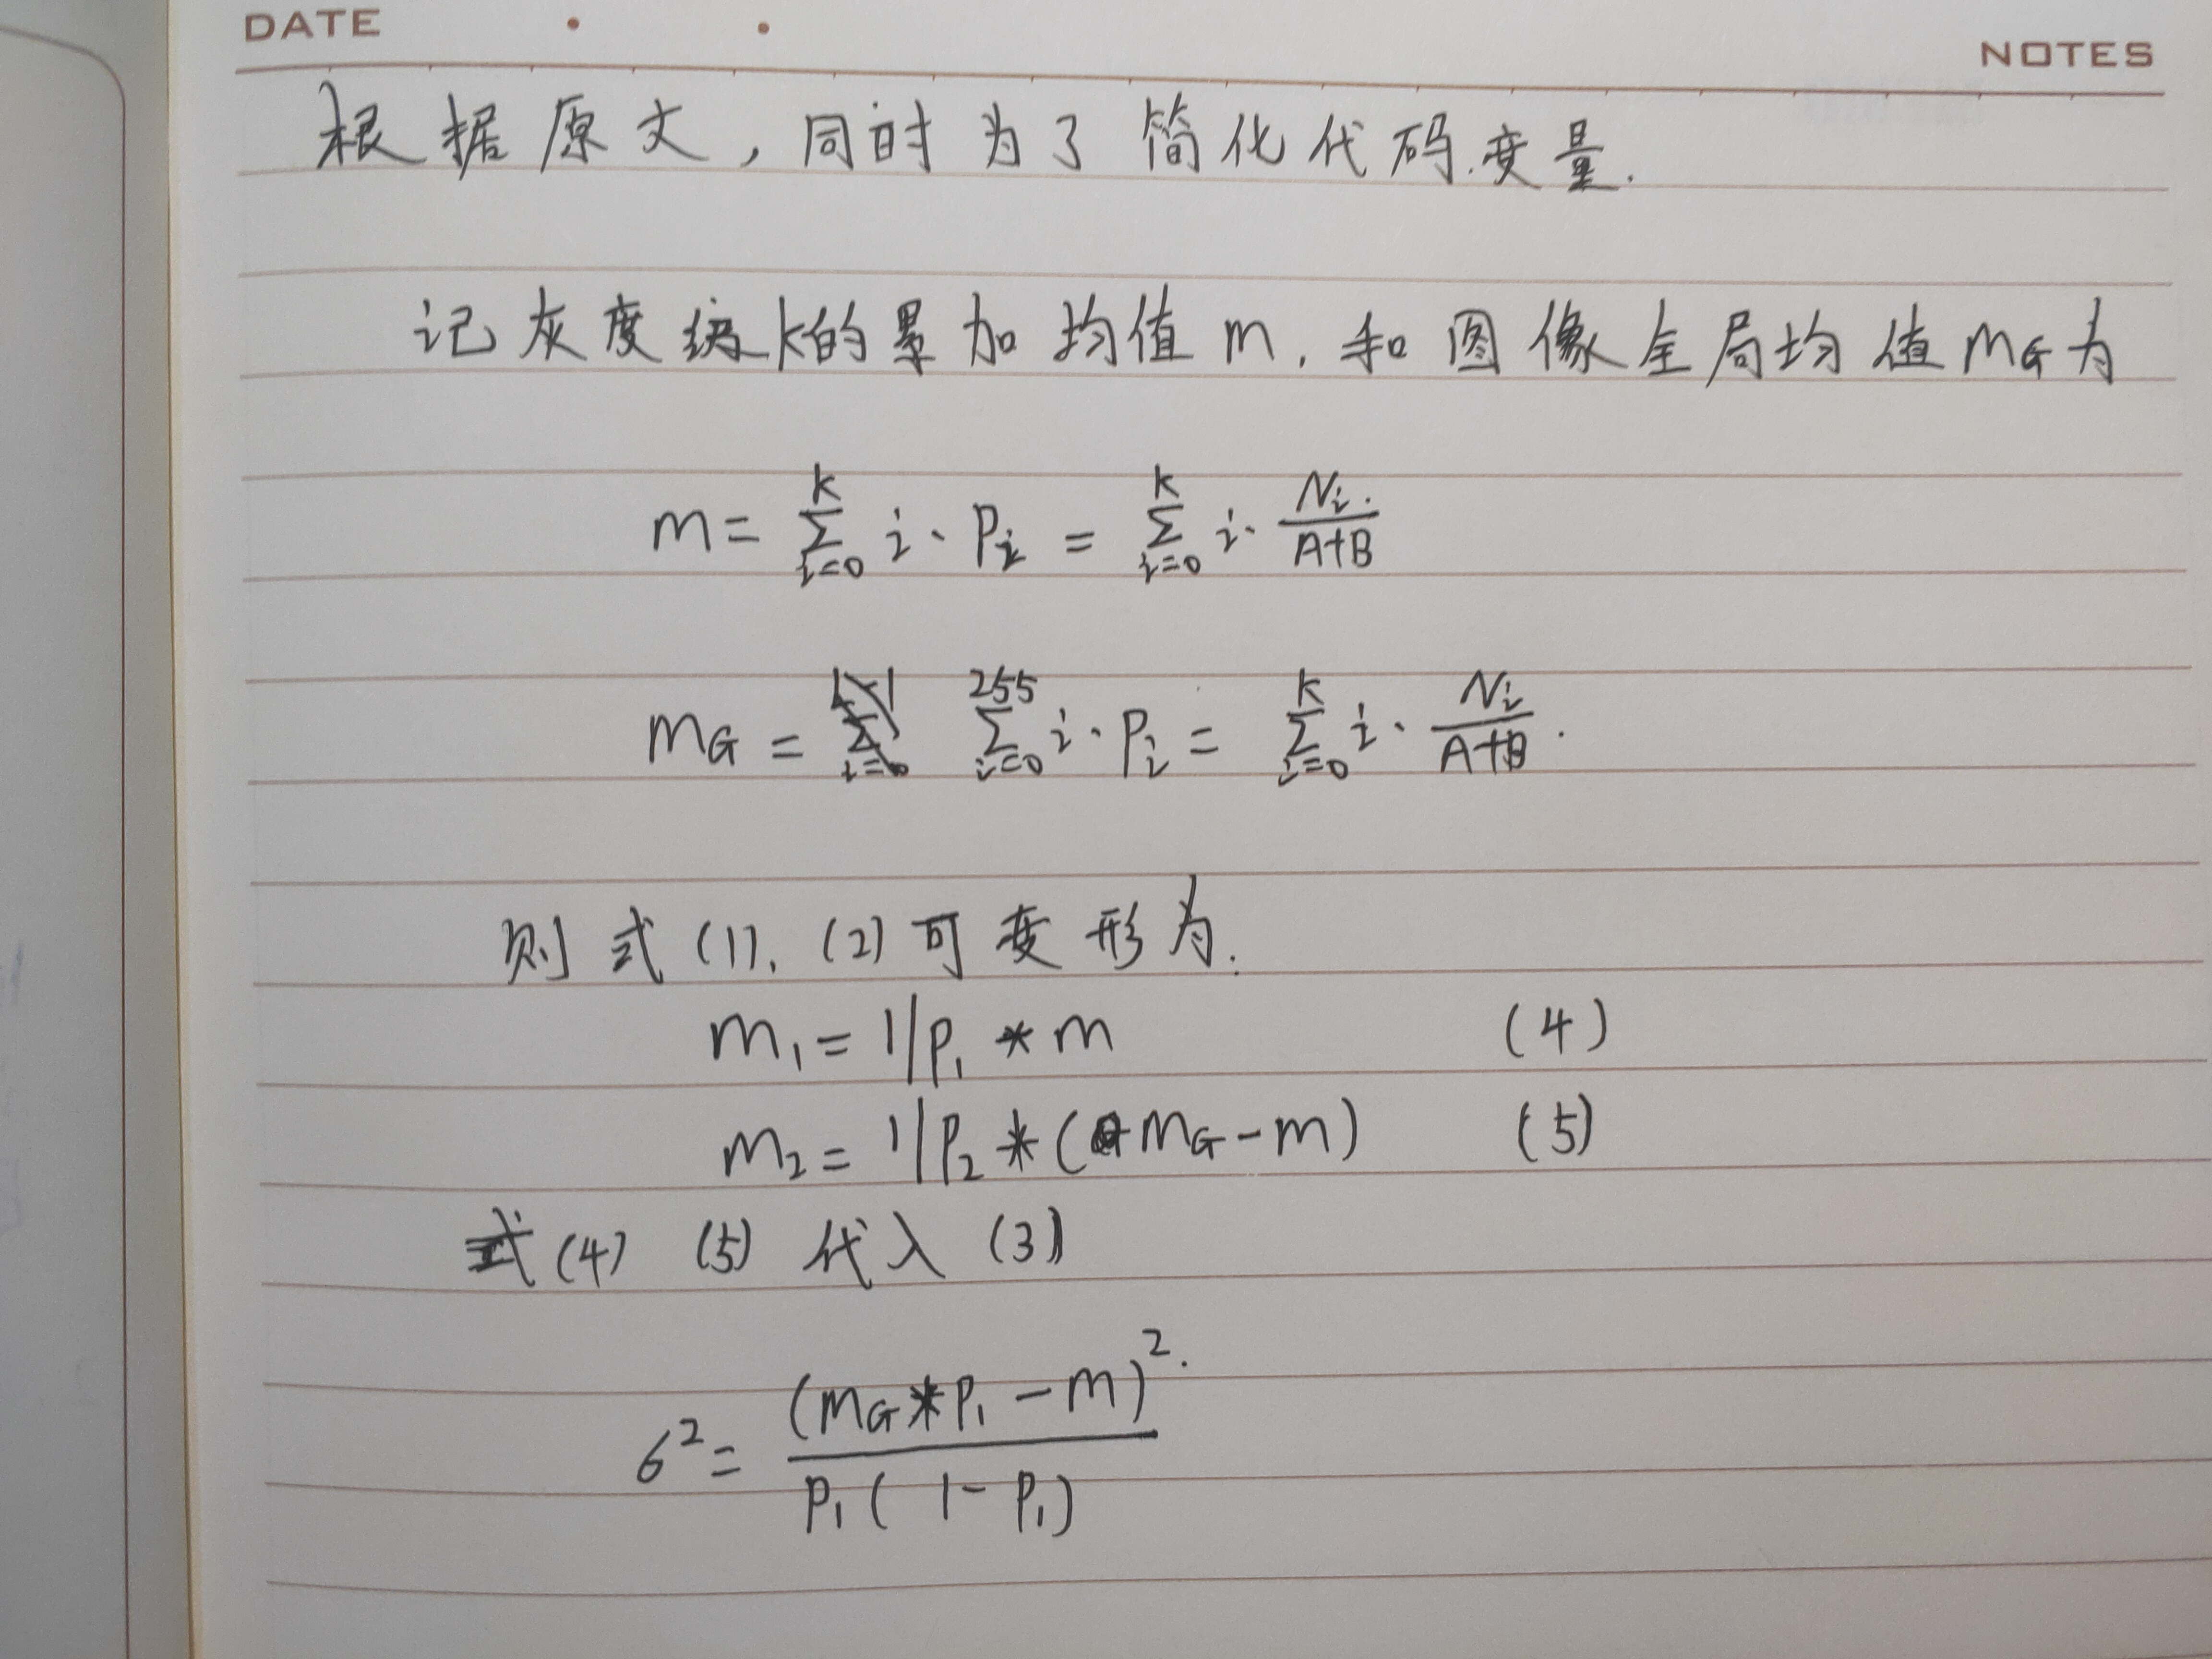 DATE
NOTES
根据原文，同时为了简化代码变量.
记灰度级k的累加均值m，和图像全局均值mG为
m = ∑_{i=0}^{k} i · Pi = ∑_{i=0}^{k} i · Ni / (A+B)
mG = ∑_{i=0}^{255} i · Pi = ∑_{i=0}^{k} i · Ni / (A+B).
则式(1)、(2)可变形为.
m₁ = 1/P₁ * m (4)
m₂ = 1/P₂ * (mG - m) (5)
式(4) (5) 代入 (3)
б² = (mG * P₁ - m)² / P₁(1 - P₁)